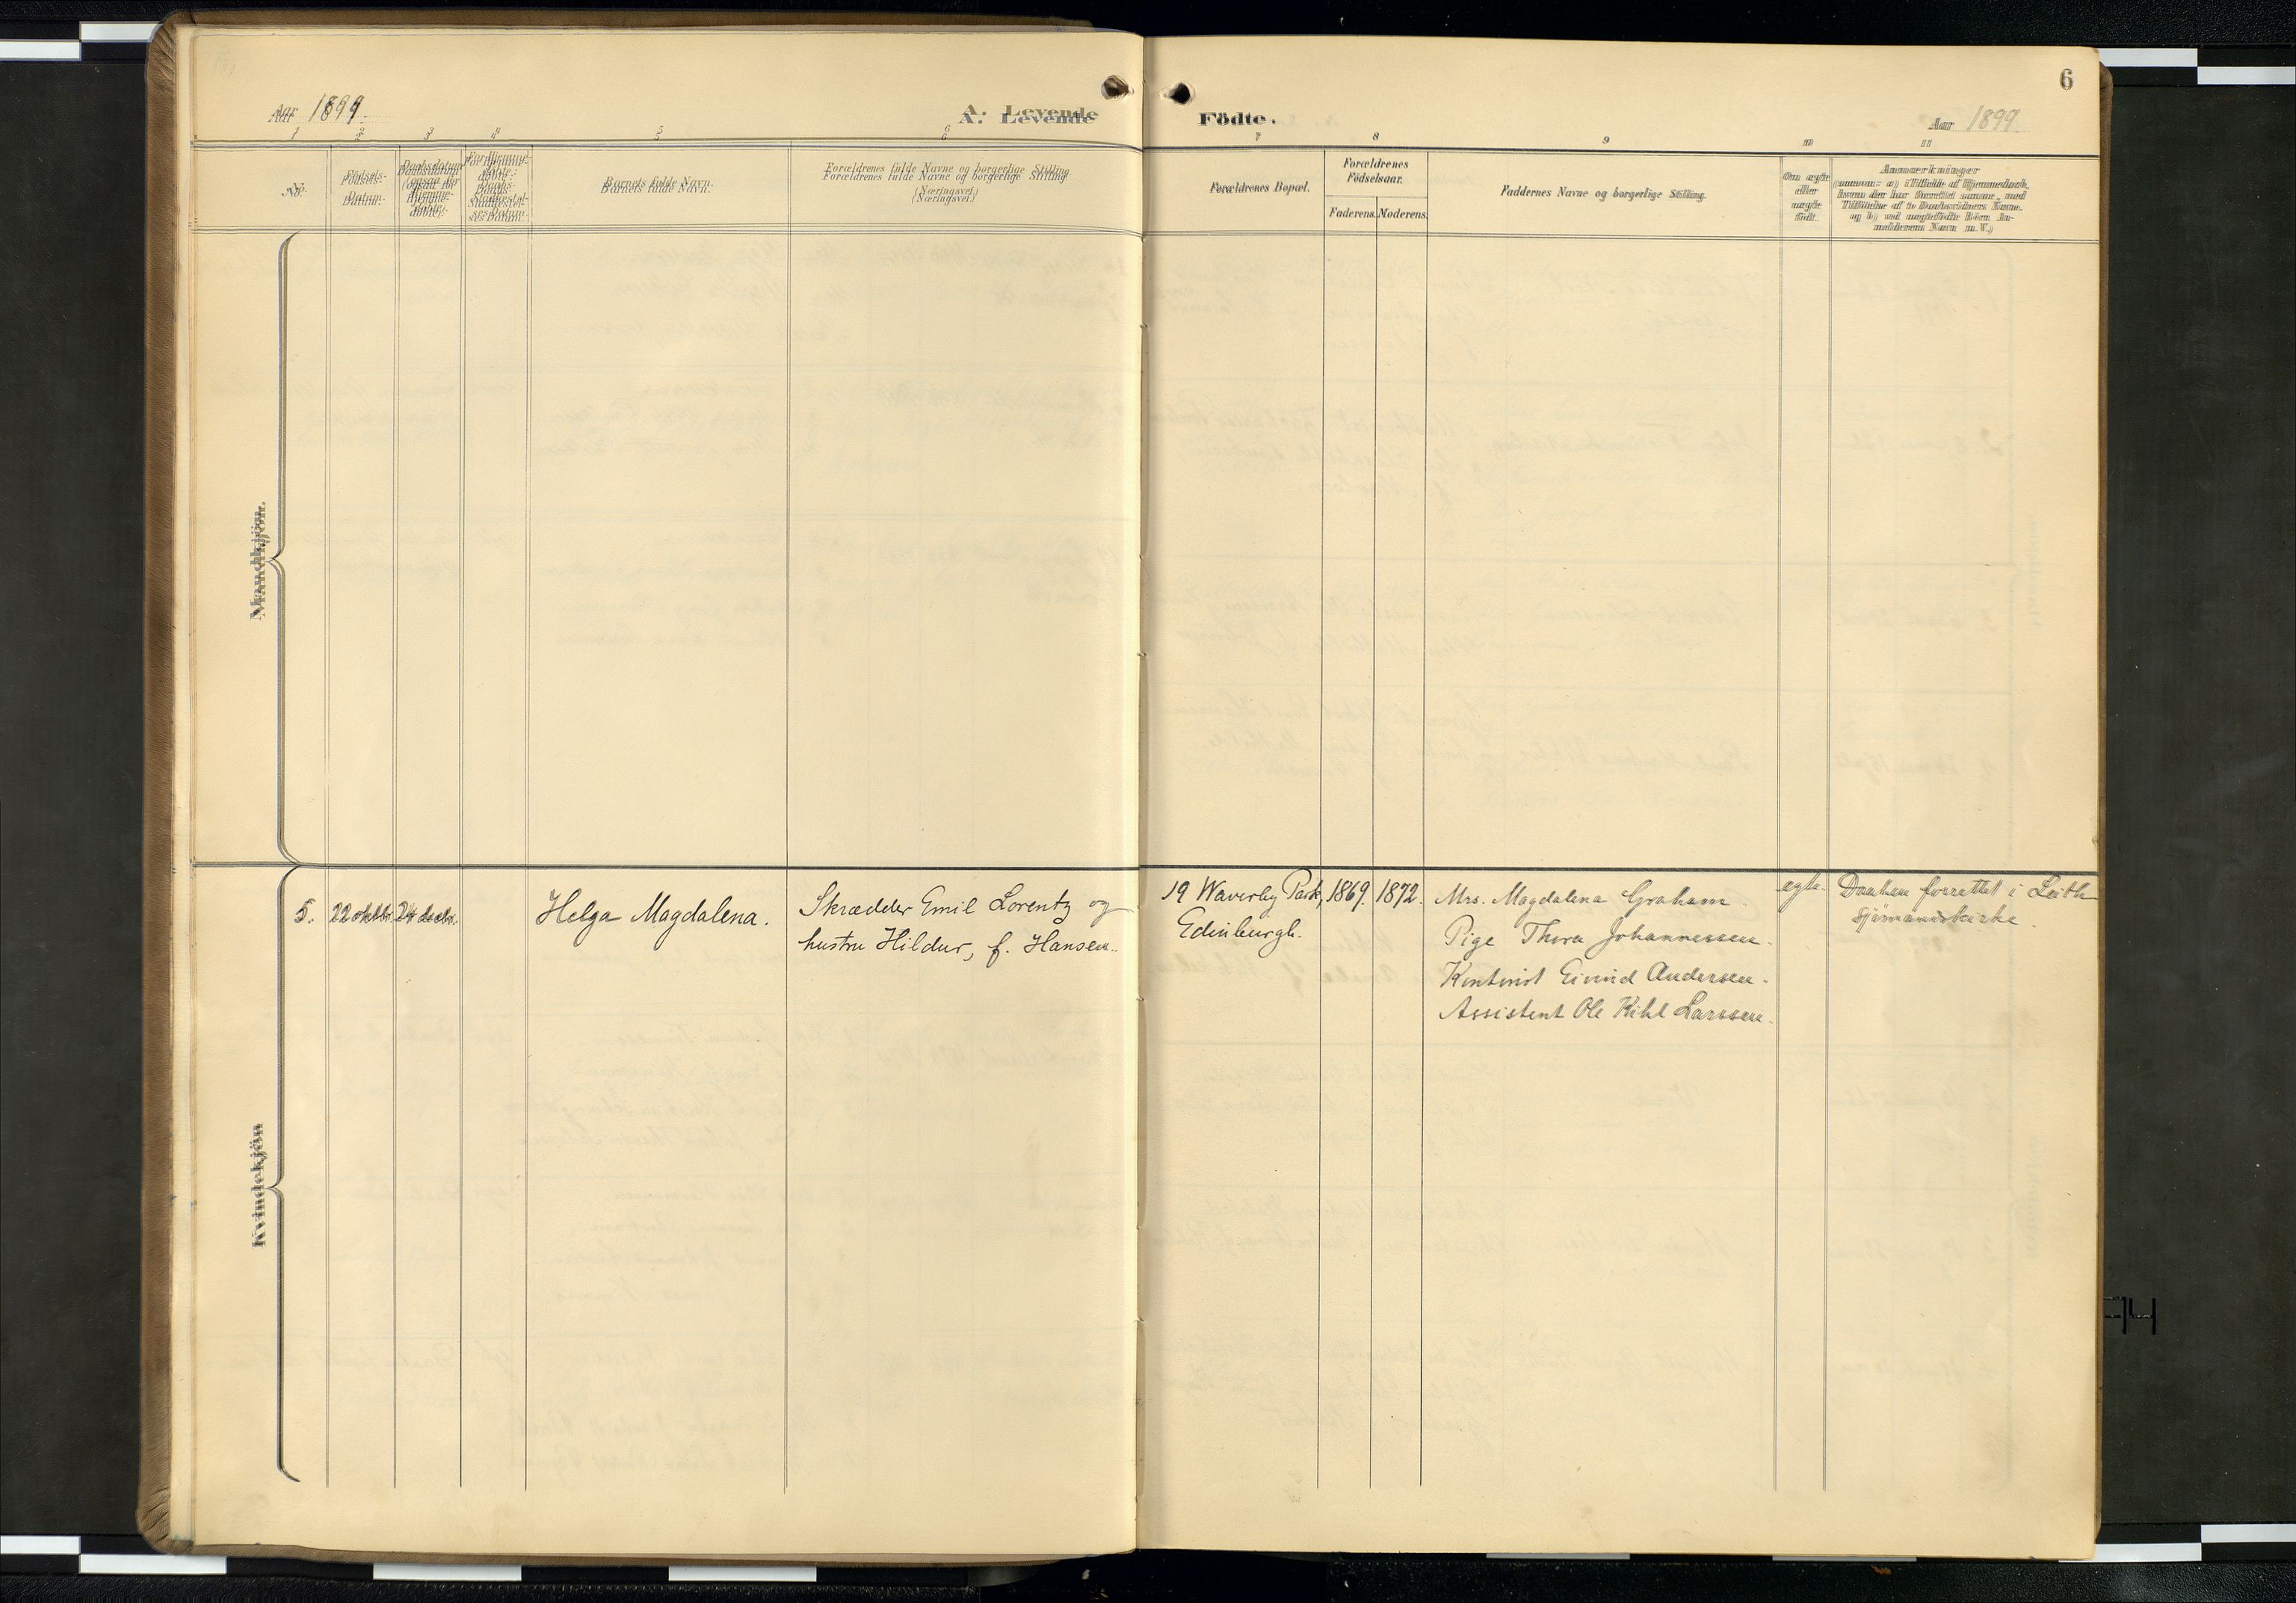 6
Aar 1899.
A. Levende
Födte.
Aar 1899.
1 2 3 4 5 6 7 8 9 10 11
No.
Födsels-
Datum.
Daabsdatum
(ogsaa for
Hjemme-
döbte).
Barnets fulde Navn.
Forældrenes fulde Navne og borgerlige Stilling
(Næringsvei.)
Forældrenes Bopæl.
Forældrenes
Födselsaar.
Faderens. Moderens.
Faddernes Navne og borgerlige Stilling.
Om ægte
eller
uægte
födt.
Anmærkninger
Mandkjön.
Kvindekjön
5. 22 oktbr. 24 decbr. Helga Magdalena. Skrædder Emil Lorentz og
hustru Hildur, f. Hansen.
19 Waverley Park,
Edinburgh.
1869. 1872.
Mrs. Magdalena Graham
Pige Thora Johannessen.
Kontorist Eivind Andersen.
Assistent Ole Kihl Larssen.
egte.
Daaben forrettet i Leith
sjömandskirke.